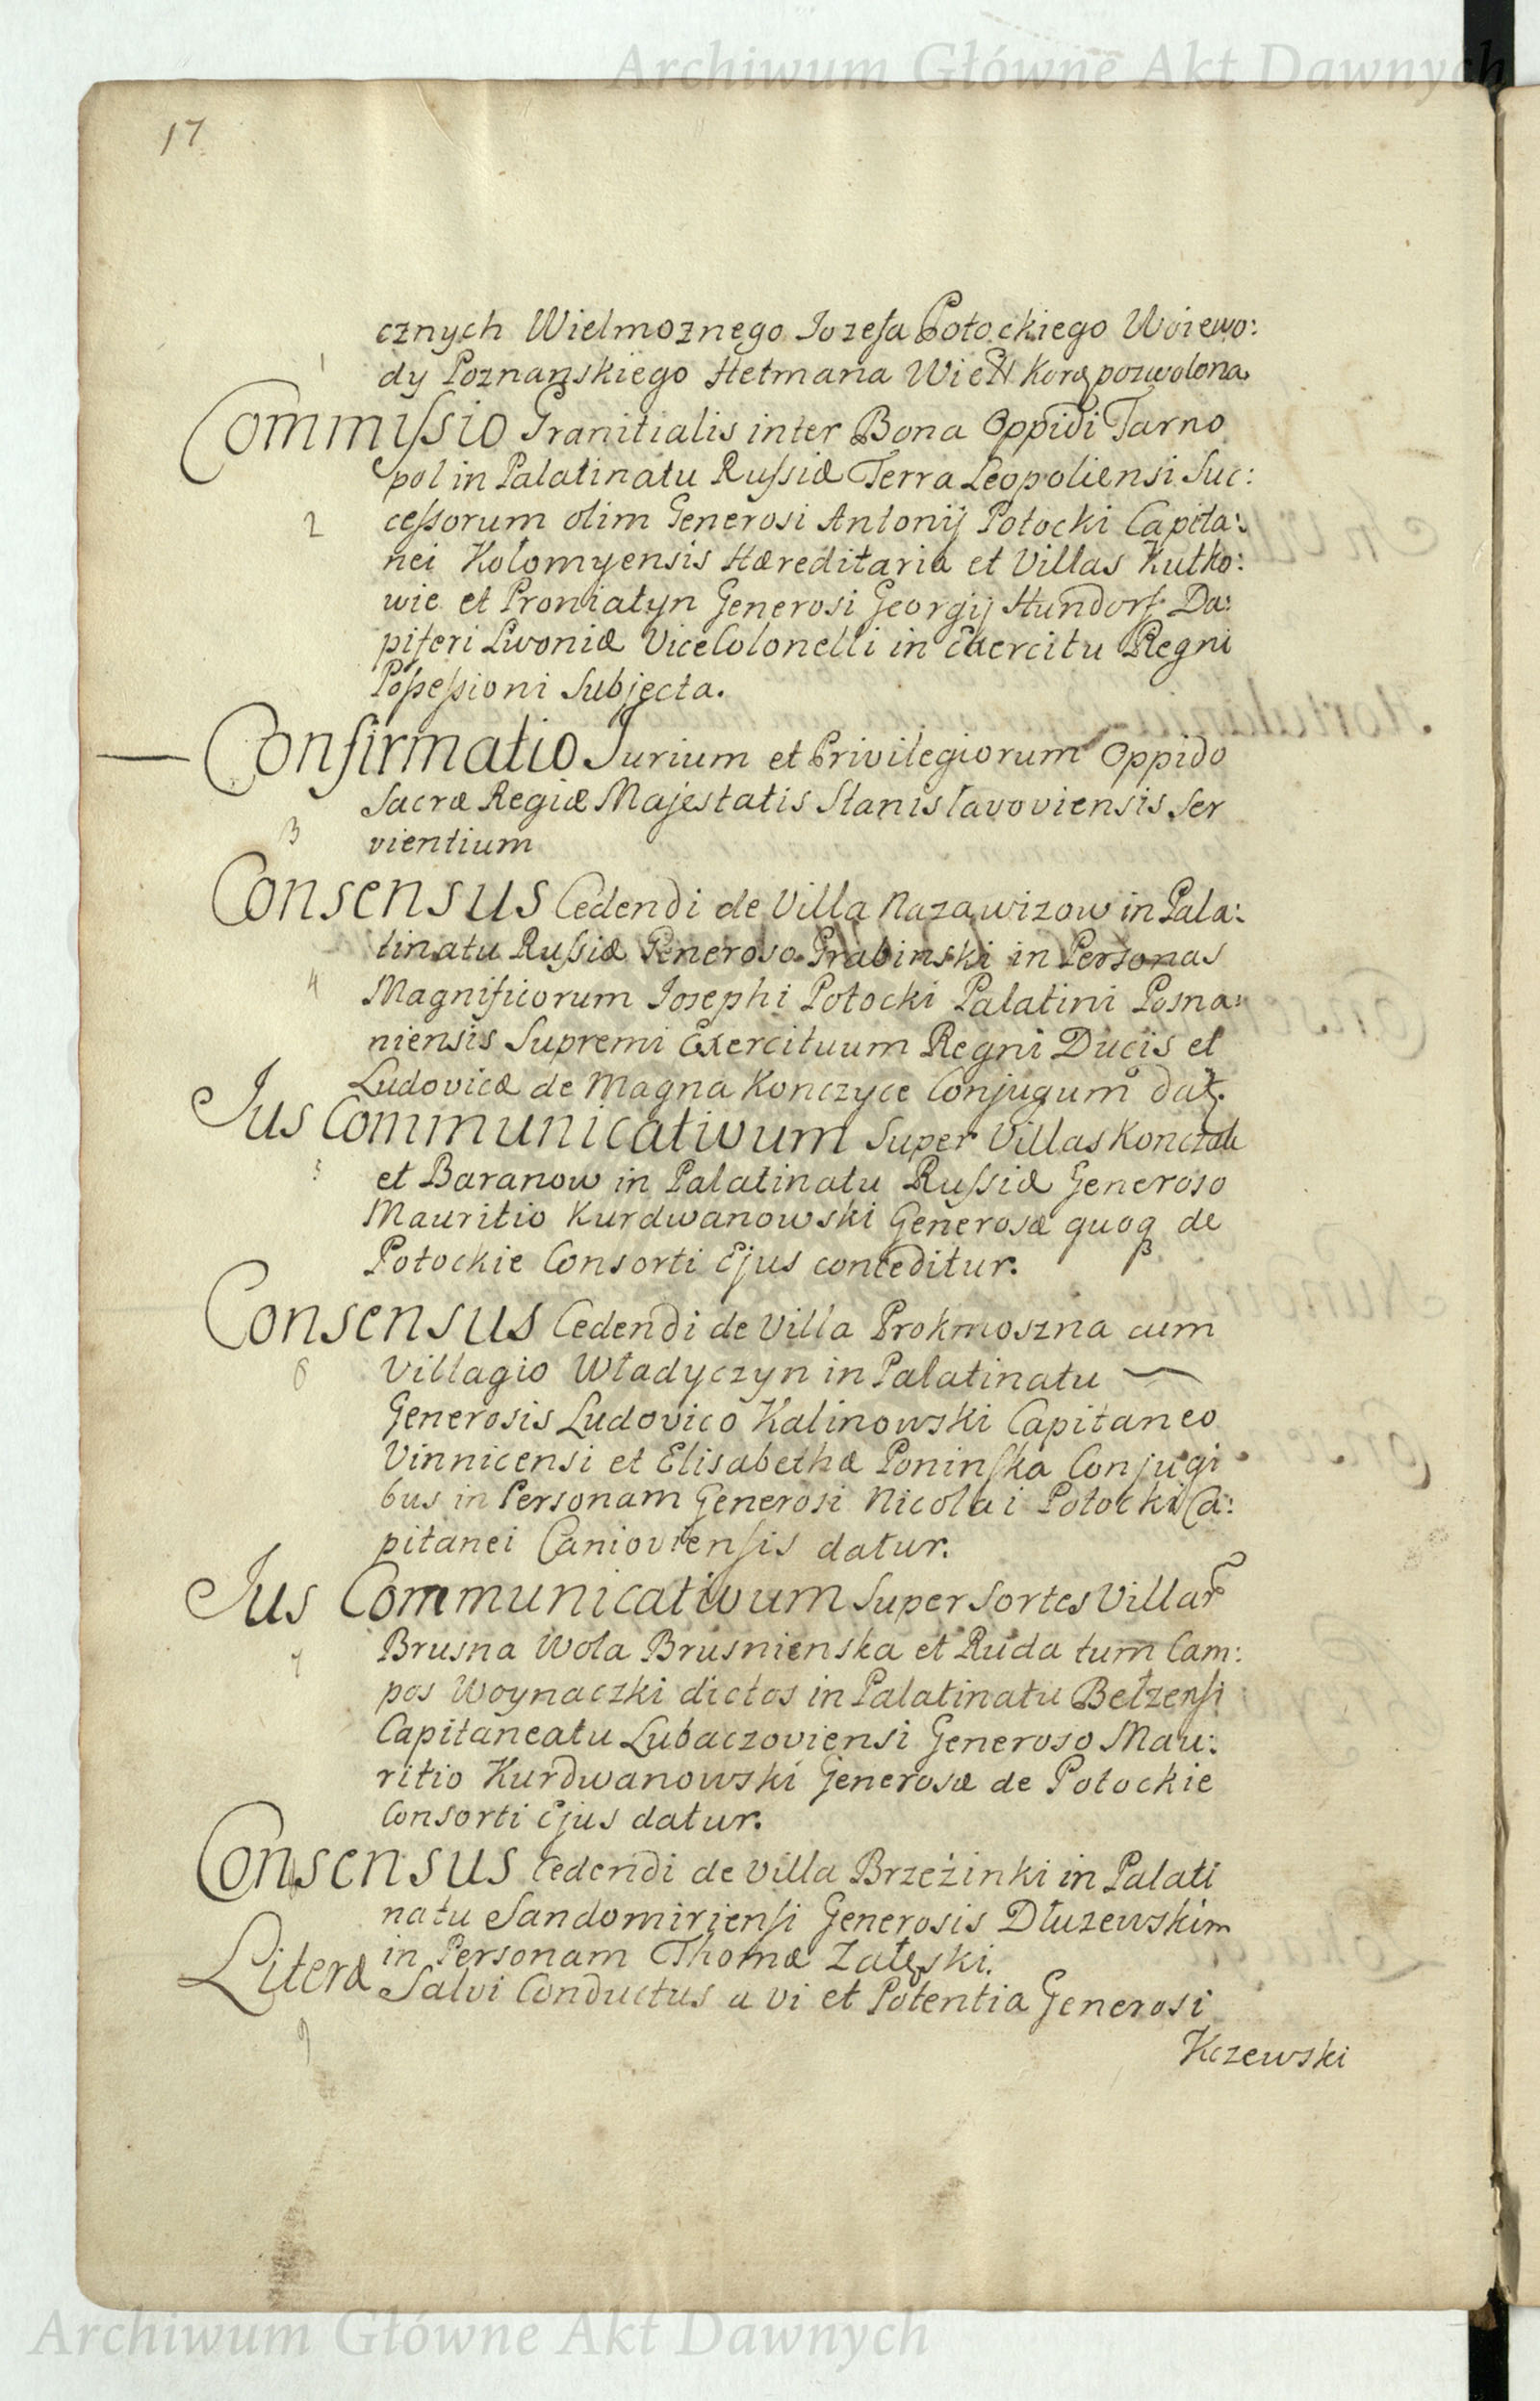 Archiwum Główne Akt Dawnych
17
cznych Wielmoznego Jozefa Potockiego Woiewo:
1
dy Poznanskiego Hetmana Wielk Koro pozwolona
Commissio Granitialis inter Bona Oppidi Tarno
pol in Palatinatu Russiæ Terra Leopoliensi Suc:
2 cessorum olim Generosi Antonij Potocki Capita:
nei Kołomyensis Hæreditaria et Villas Kutko:
wie et Proniatyn Generosi Georgij Hundorf Da:
piferi Livoniæ ViceColonelli in Exercitu Regni
Possessioni Subjecta.
Confirmatio Jurium et Privilegiorum Oppido
Sacræ Regiæ Majestatis Stanislavoviensis Ser
3 vientium
Consensus Cedendi de Villa Nazawizow in Pala:
tinatu Russiæ Generoso Grabinski in Personas
4 Magnificorum Josephi Potocki Palatini Posna:
niensis Supremi Exercituum Regni Ducis et
Ludovicæ de Magna Konczyce Conjugum dat.
Jus Communicativum Super Villas Konczaki
5 et Baranow in Palatinatu Russiæ Generoso
Mauritio Kurdwanowski Generosæ quoq de
Potockie Consorti Ejus conceditur.
Consensus Cedendi de Villa Prokmoszna cum
6 Villagio Władyczyn in Palatinatu
Generosis Ludovico Kalinowski Capitaneo
Vinnicensi et Elisabethæ Poninska Conjugi
bus in Personam Generosi Nicolai Potocki Ca:
pitanei Canioviensis datur.
Jus Communicativum Super Sortes Villar
7 Brusna Wola Brusnienska et Ruda tum Cam:
pos Woynaczki dictos in Palatinatu Bełzensi
Capitaneatu Lubaczoviensi Generoso Mau:
ritio Kurdwanowski Generosæ de Potockie
Consorti Ejus datur.
Consensus Cedendi de Villa Brzeżinki in Palati
natu Sandomiriensi Generosis Dłuzewskim
in Personam Thomæ Załęski.
Literæ Salvi Conductus a vi et Potentia Generosi
9
Kczewski
Archiwum Główne Akt Dawnych